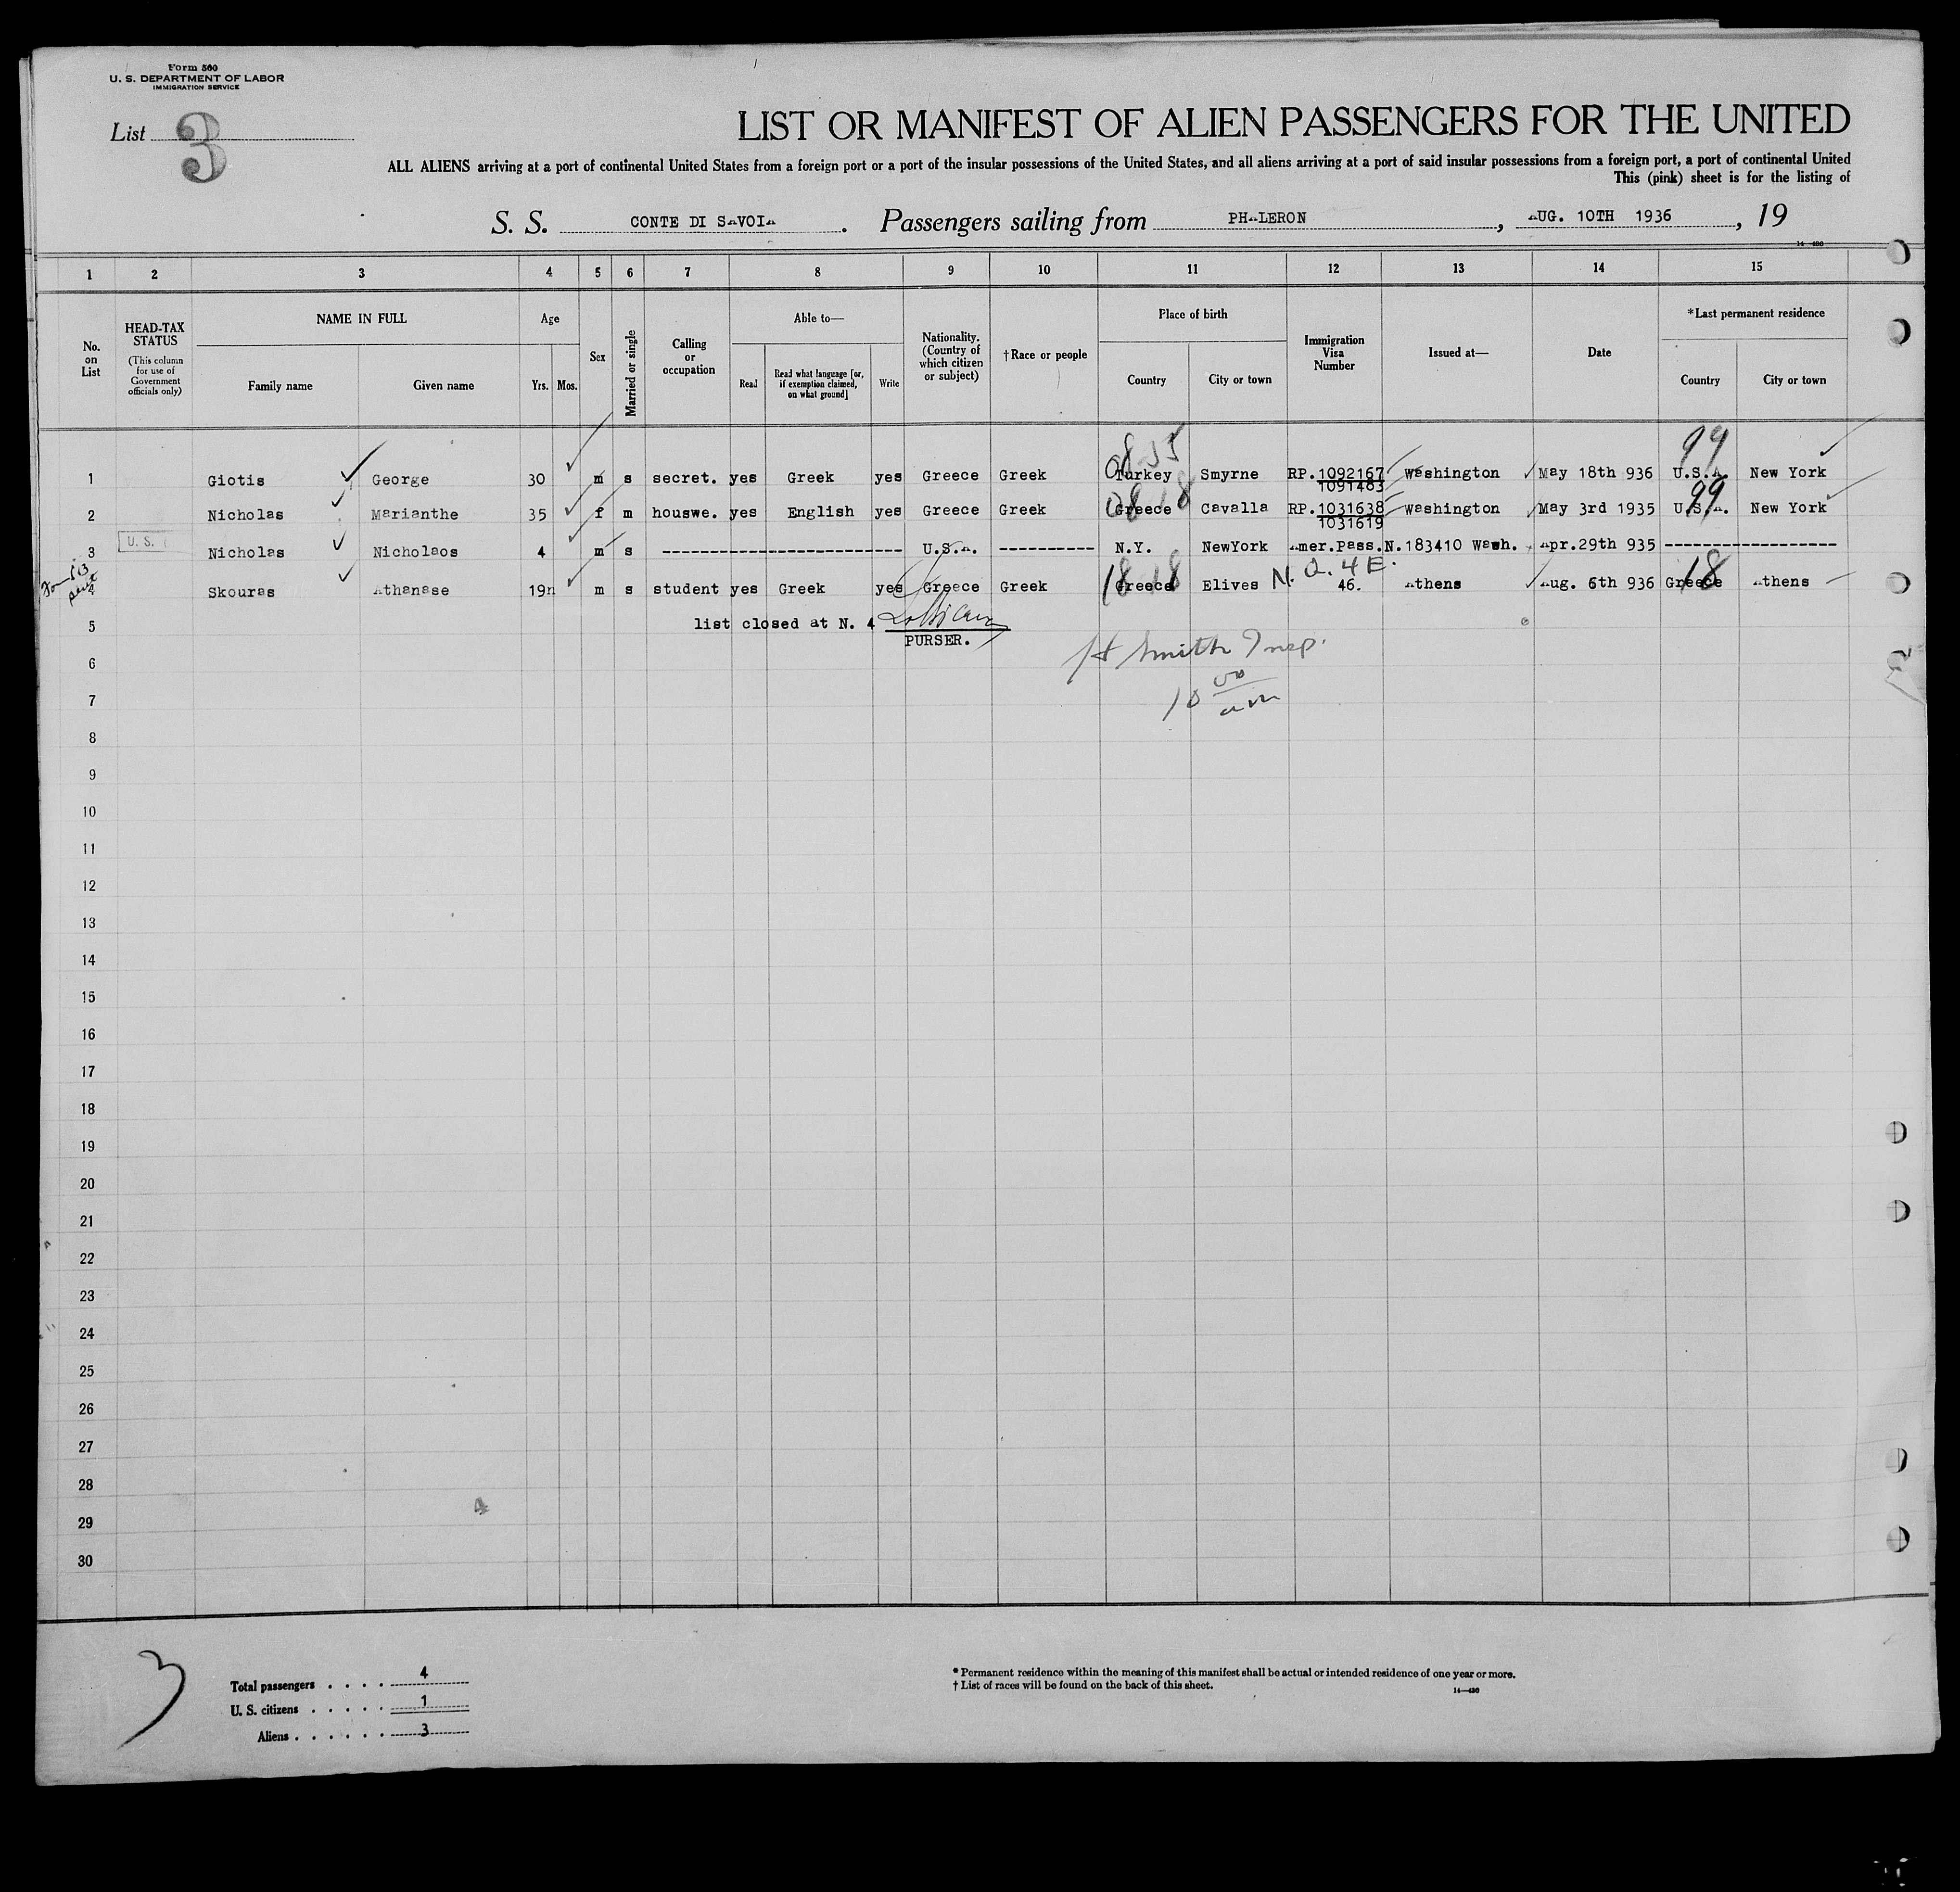 Form 500
U. S. DEPARTMENT OF LABOR
IMMIGRATION SERVICE
List 3
LIST OR MANIFEST OF ALIEN PASSENGERS FOR THE UNITED
ALL ALIENS arriving at a port of continental United States from a foreign port or a port of the insular possessions of the United States, and all aliens arriving at a port of said insular possessions from a foreign port, a port of continental United
This (pink) sheet is for the listing of
S. S. CONTE DI SAVOIA. Passengers sailing from PHALERON, AUG. 10TH 1936, 19
14-430
1 2 3 4 5 6 7 8 9 10 11 12 13 14 15
No. on List
HEAD-TAX STATUS
(This column for use of Government officials only)
NAME IN FULL
Family name Given name
Age
Yrs. Mos.
Sex
Married or single
Calling or occupation
Able to—
Read
Read what language [or, if exemption claimed, on what ground]
Write
Nationality. (Country of which citizen or subject)
†Race or people
Place of birth
Country City or town
Immigration Visa Number
Issued at—
Date
*Last permanent residence
Country City or town
99
1 Giotis George 30 m s secret. yes Greek yes Greece Greek Turkey Smyrne RP.1092167 Washington May 18th 936 U.S.A. New York
1091483
99
2 Nicholas Marianthe 35 f m houswe. yes English yes Greece Greek Greece Cavalla RP.1031638 Washington May 3rd 1935 U.S.A. New York
1031619
U. S.
3 Nicholas Nicholaos 4 m s ------------------------- U.S.A. ---------- N.Y. NewYork Amer.Pass.N.183410 Wash. Apr.29th 935 ------------------
N. Q. 4 E.
18 18 18
4 Skouras Athanase 19n m s student yes Greek yes Greece Greek Greece Elives 46. Athens Aug. 6th 936 Greece Athens
5 list closed at N. 4
PURSER.
6 Smith Insp.
7 10 00 am
8
9
10
11
12
13
14
15
16
17
18
19
20
21
22
23
24
25
26
27
28
4
29
30
3
Total passengers . . . . 4
U. S. citizens . . . . . 1
Aliens . . . . . . 3
* Permanent residence within the meaning of this manifest shall be actual or intended residence of one year or more.
† List of races will be found on the back of this sheet.
14—430